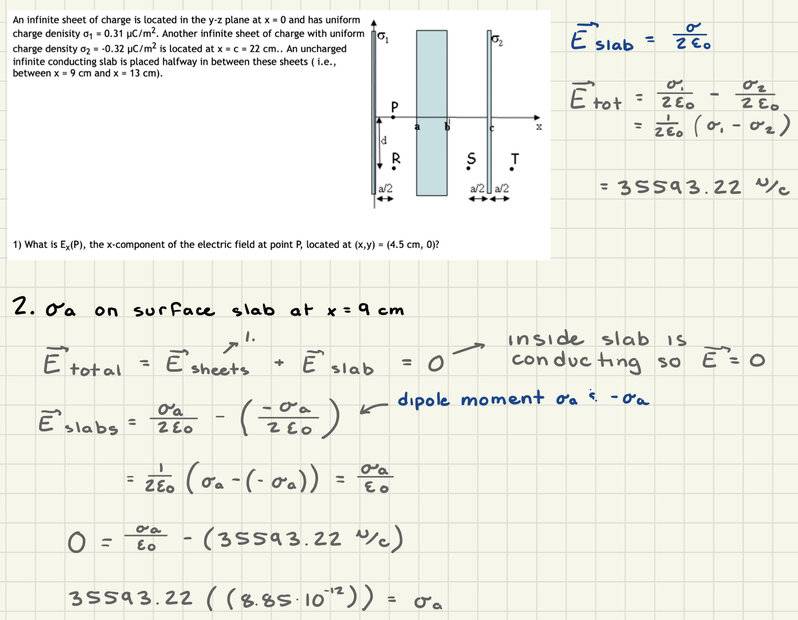 An infinite sheet of charge is located in the y-z plane at x = 0 and has uniform
charge denisity σ1 = 0.31 μC/m². Another infinite sheet of charge with uniform
charge density σ2 = -0.32 μC/m² is located at x = c = 22 cm.. An uncharged
infinite conducting slab is placed halfway in between these sheets ( i.e.,
between x = 9 cm and x = 13 cm).
σ1
σ2
P
a
b
c
x
d
R
S
T
a/2
a/2
a/2
1) What is Ex(P), the x-component of the electric field at point P, located at (x,y) = (4.5 cm, 0)?
E⃗ slab = σ/2ε₀
E⃗ tot = σ₁/2ε₀ - σ₂/2ε₀
= 1/2ε₀ (σ₁ - σ₂)
= 35593.22 N/C
2. σa on surface slab at x = 9 cm
1.
E⃗ total = E⃗ sheets + E⃗ slab = 0
inside slab is
conducting so E⃗ = 0
E⃗ slabs = σa/2ε₀ - (-σa/2ε₀)
dipole moment σa & -σa
= 1/2ε₀ (σa - (-σa)) = σa/ε₀
0 = σa/ε₀ - (35593.22 N/C)
35593.22 ((8.85·10⁻¹²)) = σa